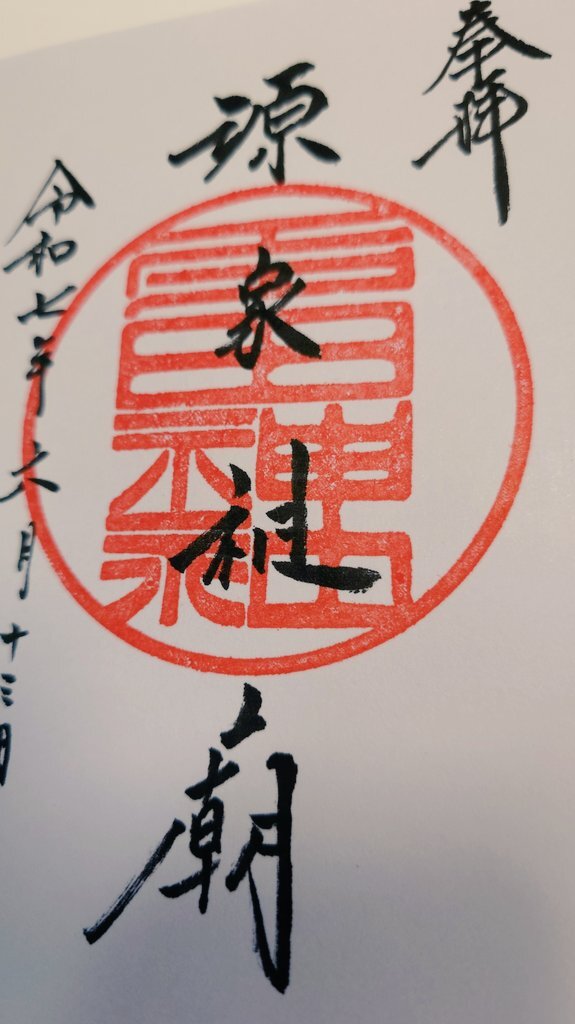 奉拝
源家祖廟
令和七年六月十三日